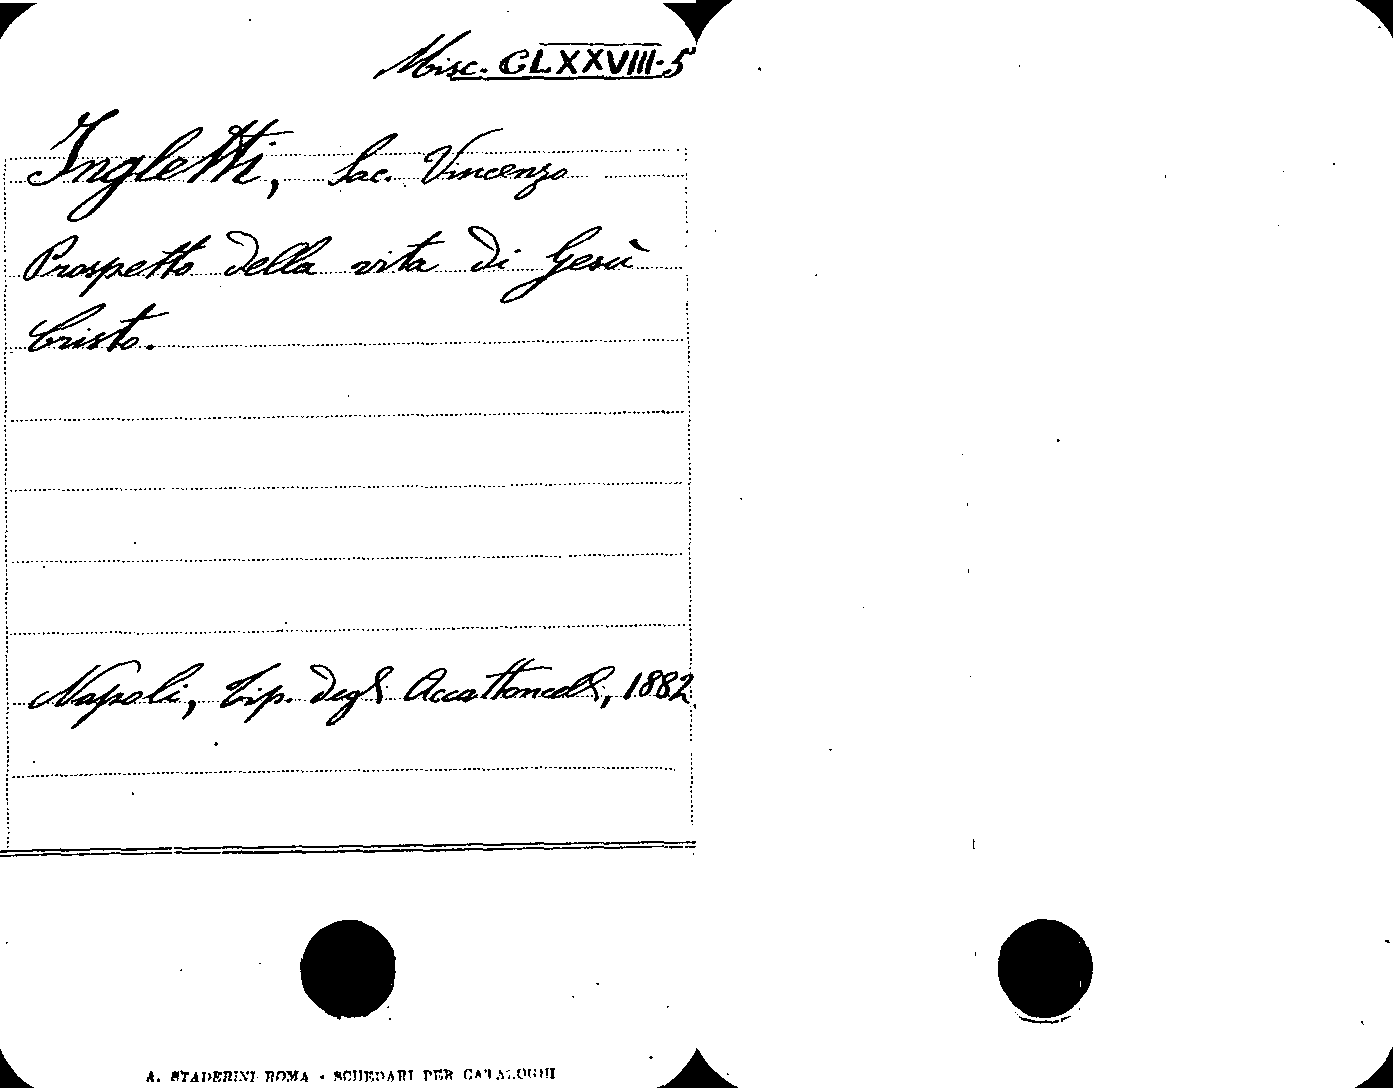 Misc. CLXXVIII-5
Ingletti, Sac. Vincenzo
Prospetto della vita di Gesù
Cristo.
Napoli, Tip. degli Accattoncelli, 1882
A. STADERINI ROMA - SCHEDARI PER CATALOGHI